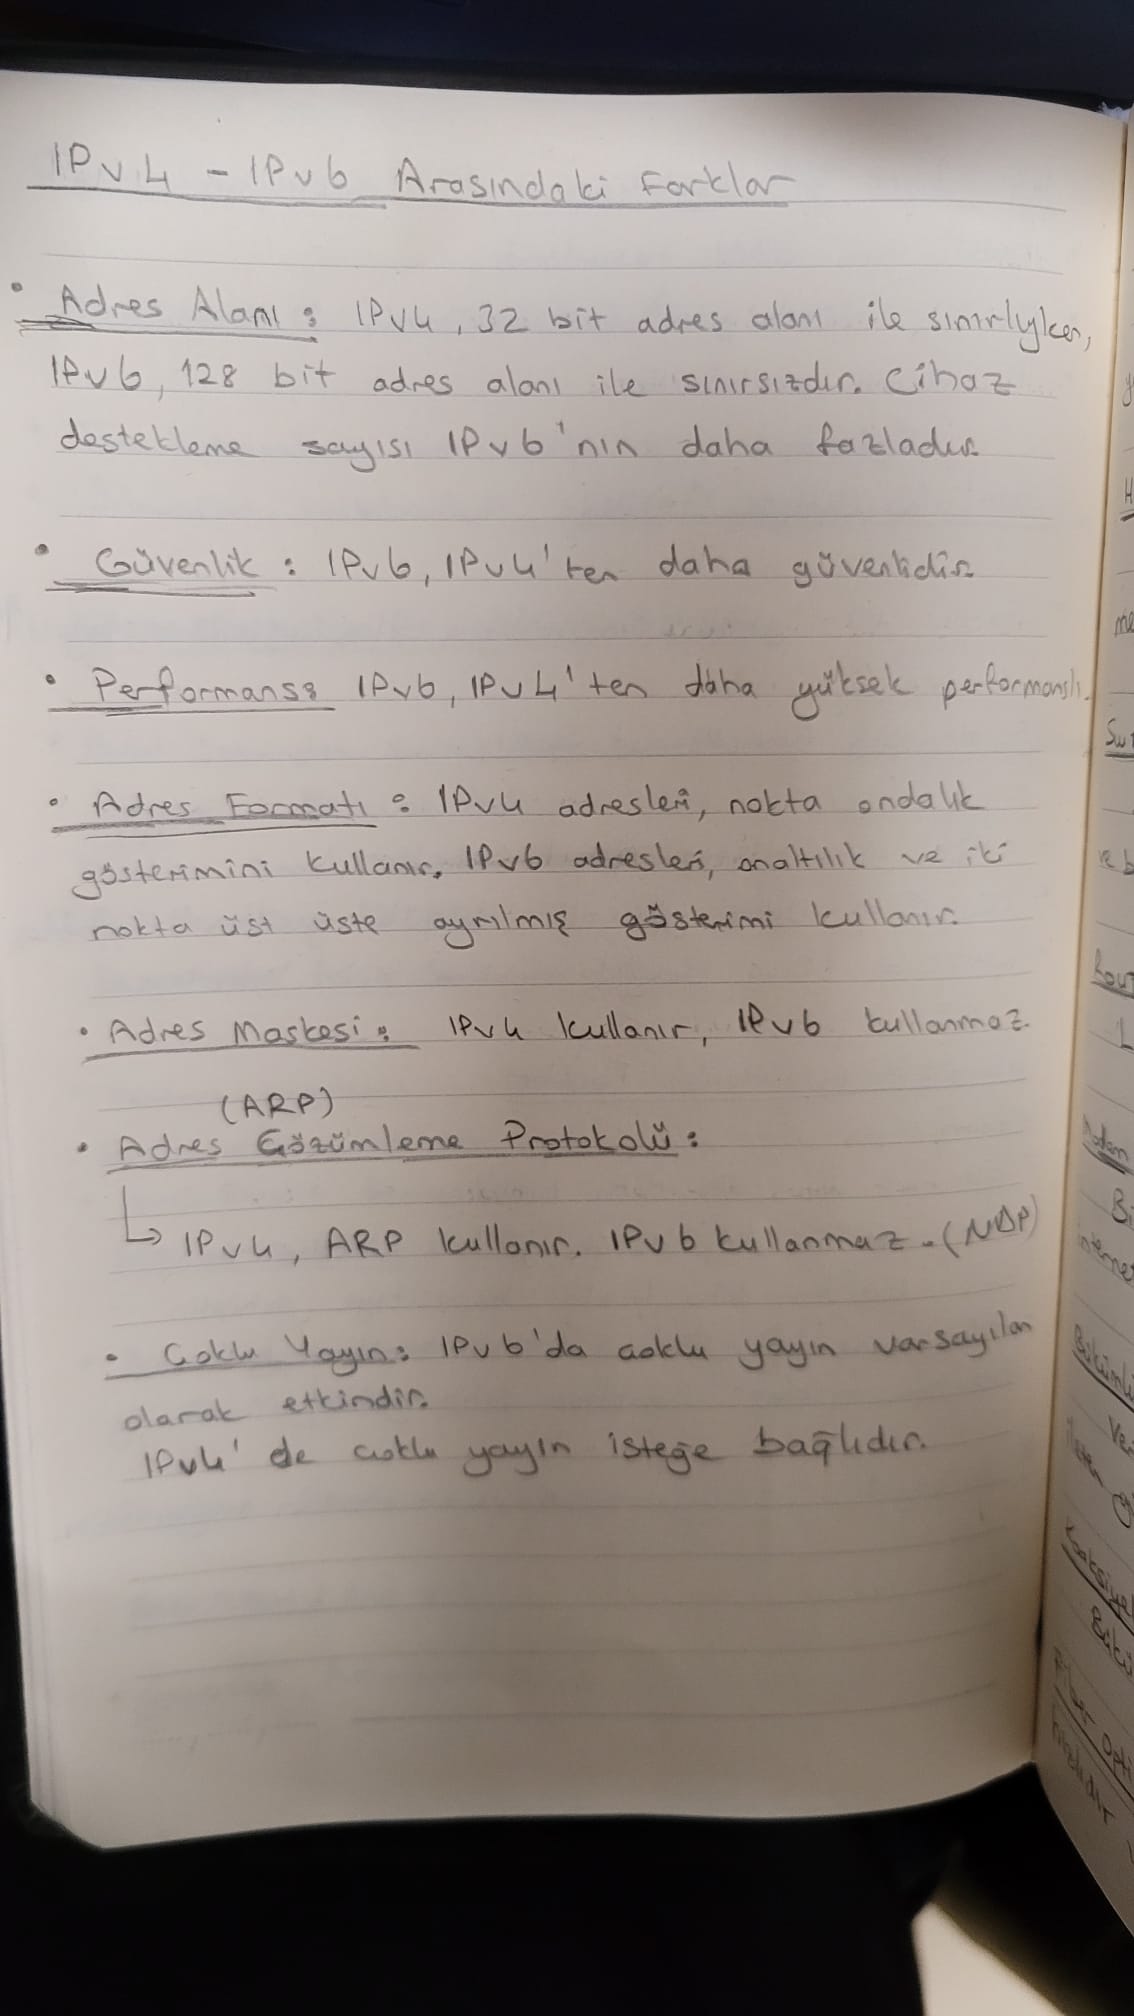 IPv4 - IPv6 Arasındaki Farklar
• Adres Alanı : IPv4, 32 bit adres alanı ile sınırlıyken,
IPv6, 128 bit adres alanı ile sınırsızdır. Cihaz
destekleme sayısı IPv6'nın daha fazladır.
• Güvenlik : IPv6, IPv4'ten daha güvenlidir.
• Performans : IPv6, IPv4'ten daha yüksek performanslı.
• Adres Formatı : IPv4 adresleri, nokta ondalık
gösterimini kullanır. IPv6 adresleri, onaltılık ve iki
nokta üst üste ayrılmış gösterimi kullanır.
• Adres Maskesi : IPv4 kullanır, IPv6 kullanmaz.
(ARP)
• Adres Çözümleme Protokolü :
↳ IPv4, ARP kullanır. IPv6 kullanmaz. (NDP)
• Çoklu Yayın : IPv6'da çoklu yayın varsayılan
olarak etkindir.
IPv4'de çoklu yayın isteğe bağlıdır.